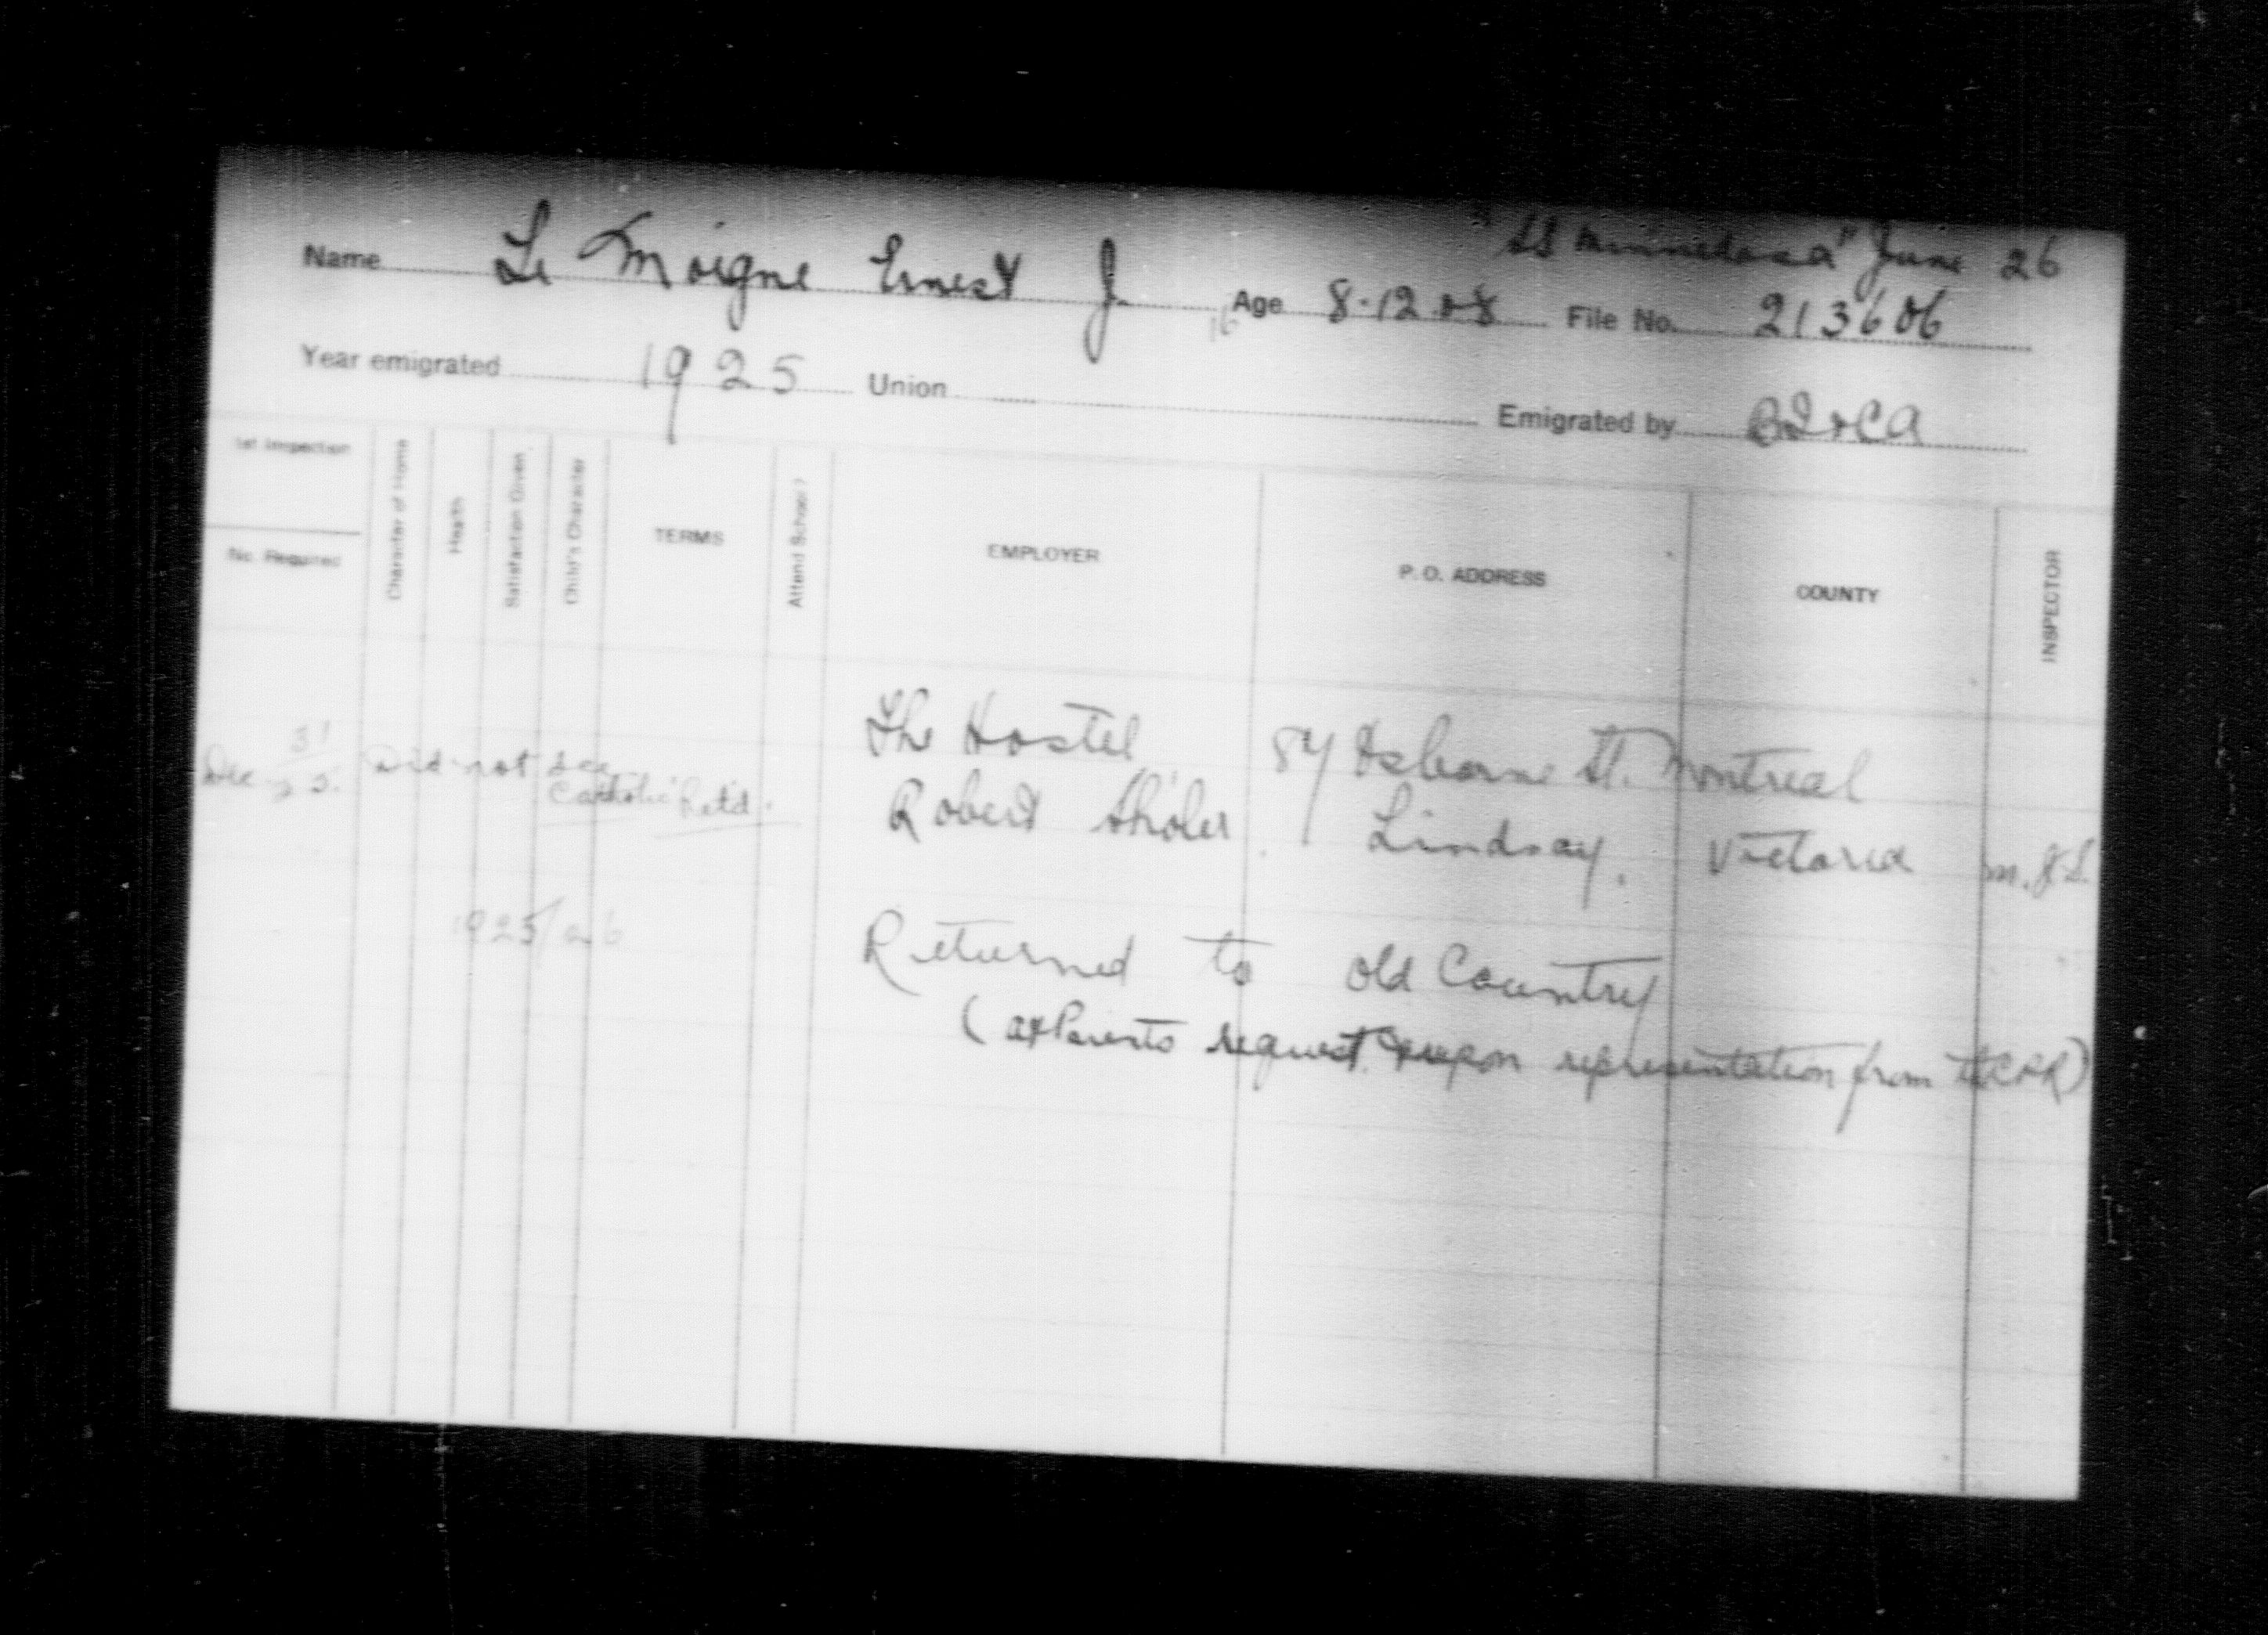 "SS Minnedosa" June 26
Name Le Moigne Ernest J. Age 8-12-08 File No. 213606
16
Year emigrated 1925 Union Emigrated by
1st Inspection
No. Required
Character of Home
Health
Satisfaction Given
Child's Character
TERMS
Attend School?
EMPLOYER
P. O. ADDRESS
COUNTY
INSPECTOR
The Hostel 87 Osborne St. Montreal
Dec 31 25. Did not see Robert Lindsay. Victoria
Catholic
1925/26
Returned to Old Country
(at Parents request upon representation from